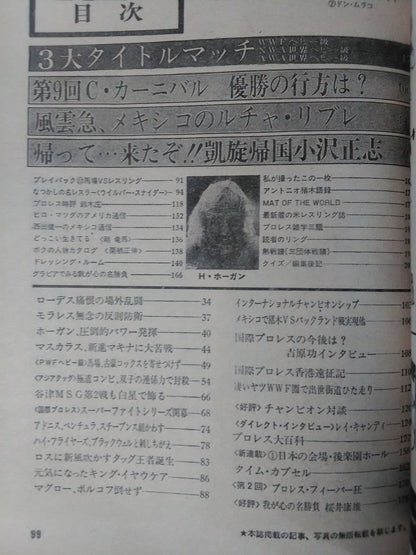 ②ドン・ムラコ
目次
3大タイトルマッチ
WWF世界ヘビー級
NWA世界ヘビー級
AWA世界ヘビー級
第9回C・カーニバル 優勝の行方は?
風雲急、メキシコのルチャ・リブレ
帰って…来たぞ!!凱旋帰国小沢正志
プレイバック 馬場VSレスリング 91
なつかしの名レスラー〈ウイルバー・スナイダー〉 94
プロレス時評 鈴木庄一 118
ヒロ・マツダのアメリカ通信 132
西出健一のメキシコ通信 134
どっこい生きてる〈剛竜馬〉 136
ボクの人物カタログ 138
ドレッシング・ルーム 140
グラビアでみる我が心の名勝負 166
H・ホーガン
私が撮ったこの一枚
アントニオ猪木語録
MAT OF THE WORLD
最新着の米レスリング誌
プロレス雑学三題
読者のリング
熱戦譜〈三団体戦績〉
クイズ/編集後記
ローデス痛恨の場外乱闘 34
モラレス無念の反則防衛 37
ホーガン、圧倒的パワー発揮 40
マスカラス、新進マキナに大苦戦 44
〈PWFヘビー級〉馬場、古豪コックスを寄せつけず 49
〈アジアタッグ〉極道コンビ、双子の連係力で封殺 54
谷津MSG第2戦も白星で飾る 66
〈国際プロレス〉スーパーファイトシリーズ開幕 68
アドニス、ベンチュラ、スチーブンス組かもす 74
ハイ・フライヤーズ、ブラックウェルと刺しちがえ 78
ロスに新風吹かすタッグ王者誕生 83
元気になったキング・イヤウケア 86
マグロー、ボルコフ倒せず 88
インターナショナルチャンピオンシップ
メキシコで猪木VSバックランド戦実現他
国際プロレスの今後は?
吉原功インタビュー 108
国際プロレス香港遠征記 110
凄いヤツWWF圏で出世街道ひた走り 112
〈好評〉チャンピオン対談
〈ダイレクト・インタビュー〉レイ・キャンディ
プロレス大百科
〈新連載〉①日本の会場・後楽園ホール
タイム・カプセル
〈第2回〉プロレス・フィーバー狂
〈好評〉我が心の名勝負 桜井康雄
99
★本誌掲載の記事、写真の無断転載を禁じます。